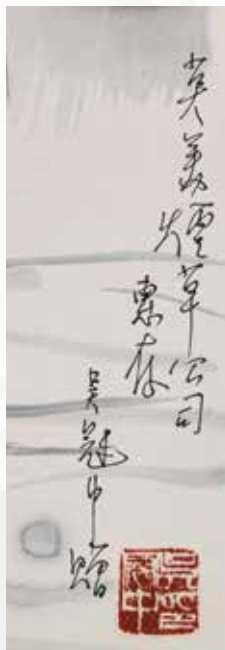 英美煙草公司
惠存
吴冠中贈
吴冠中印